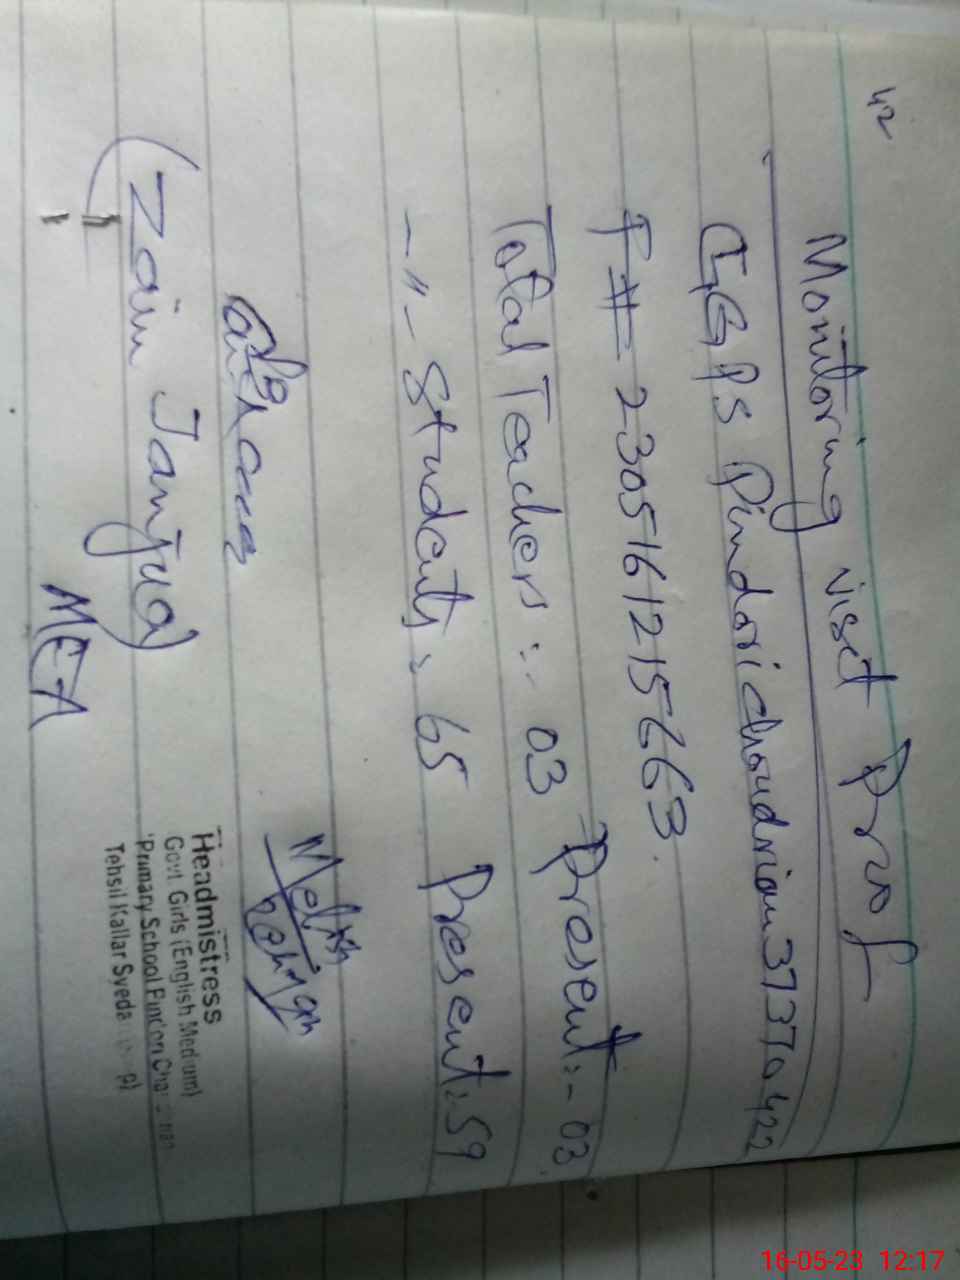 42
Monitoring visit Proof
GGPS Pindori choudrian 37370422
P# 230516121 5663
Total Teachers:- 03 Present:- 03
-"- Students: 65 Present:59
(Zain Janjua)
MEA
Headmistress
Govt Girls (English Medium)
Primary School
Tehsil Kallar Syeda
16-05-23 12:17